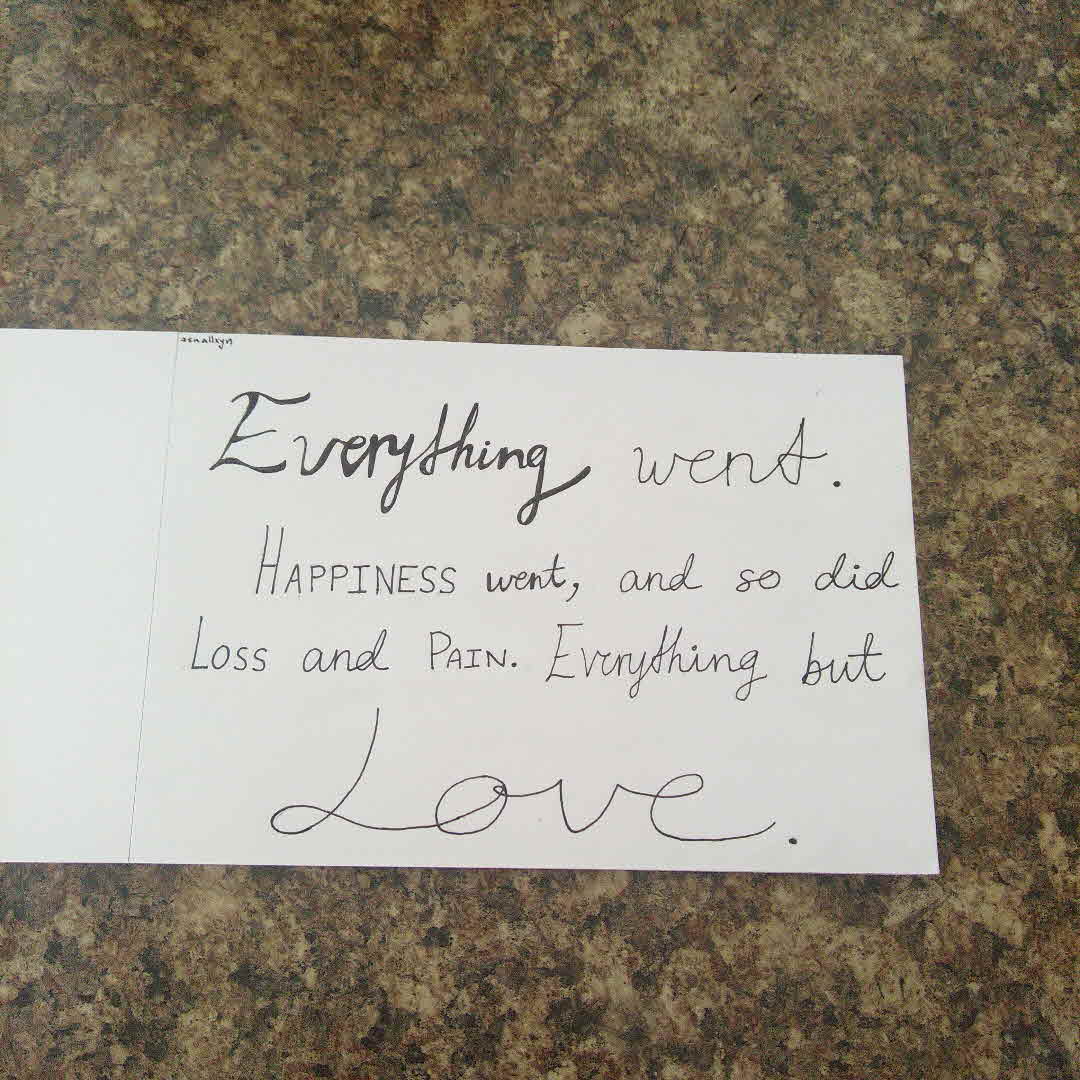 Everything went.
HAPPINESS went, and so did
LOSS and PAIN. Everything but
Love.